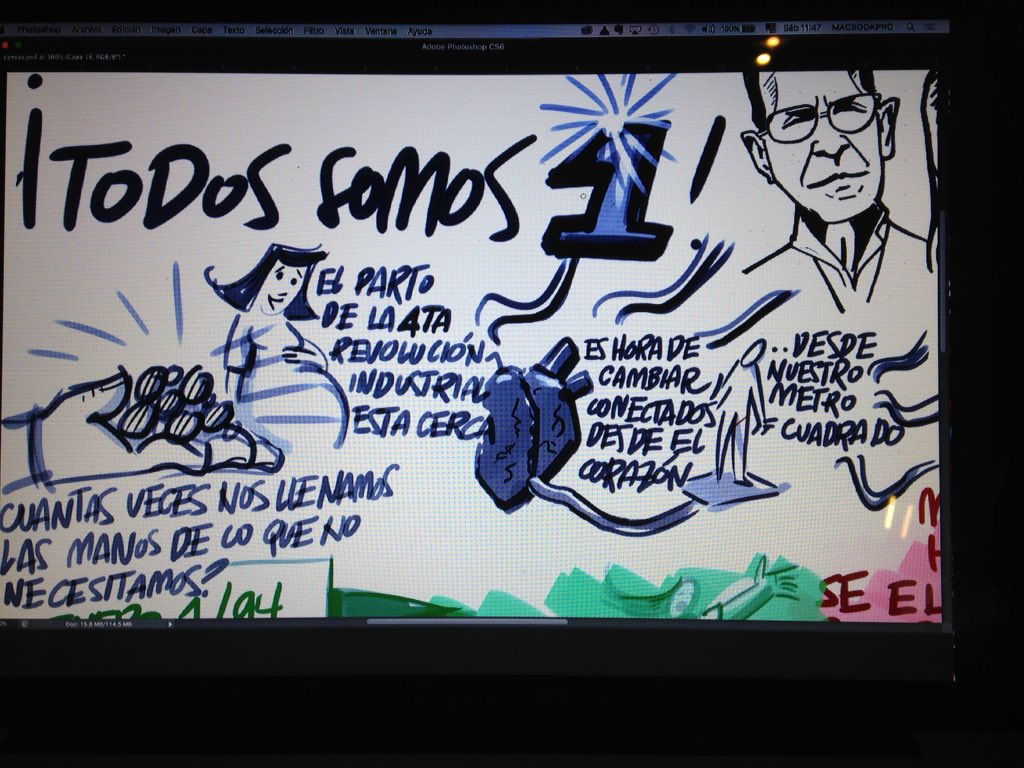 Photoshop Archivo Edición Imagen Capa Texto Selección Filtro Vista Ventana Ayuda 100% Sáb 11:47 MACBOOKPRO
Adobe Photoshop CS6
canvas.psd al 100% (Capa 18, RGB/8*) *
¡TODOS SOMOS 1!
EL PARTO
DE LA 4TA
REVOLUCIÓN
INDUSTRIAL
ESTA CERCA
ES HORA DE
CAMBIAR
CONECTADOS
DESDE EL
CORAZÓN
...DESDE
NUESTRO
METRO
CUADRADO
CUANTAS VECES NOS LLENAMOS
LAS MANOS DE LO QUE NO
NECESITAMOS?
ENERO 1/94
SE EL
Doc: 15.8 MB/114.5 MB